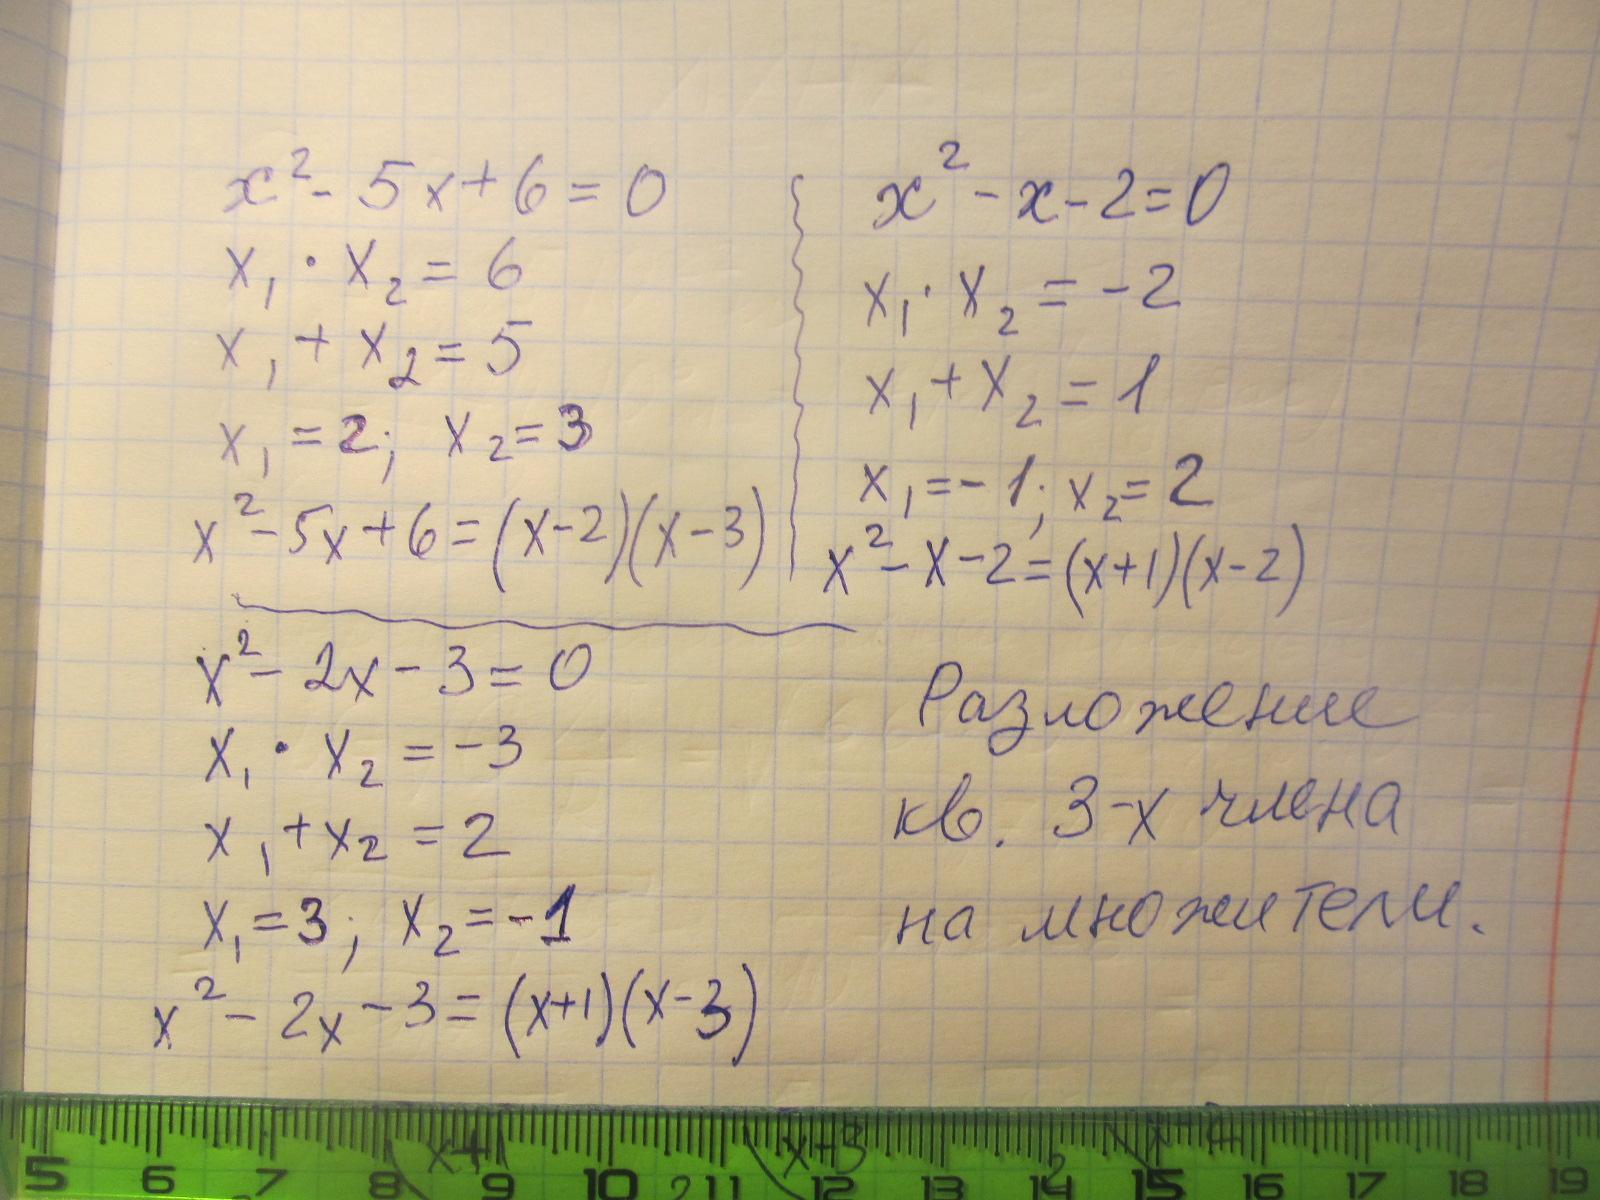 x² - 5x + 6 = 0
x₁ · x₂ = 6
x₁ + x₂ = 5
x₁ = 2; x₂ = 3
x² - 5x + 6 = (x-2)(x-3)
x² - x - 2 = 0
x₁ · x₂ = -2
x₁ + x₂ = 1
x₁ = -1; x₂ = 2
x² - x - 2 = (x+1)(x-2)
x² - 2x - 3 = 0
x₁ · x₂ = -3
x₁ + x₂ = 2
x₁ = 3; x₂ = -1
x² - 2x - 3 = (x+1)(x-3)
Разложение
кв. 3-х члена
на множители.
x+1 x-3
5 6 7 8 9 10 11 12 13 14 15 16 17 18 19